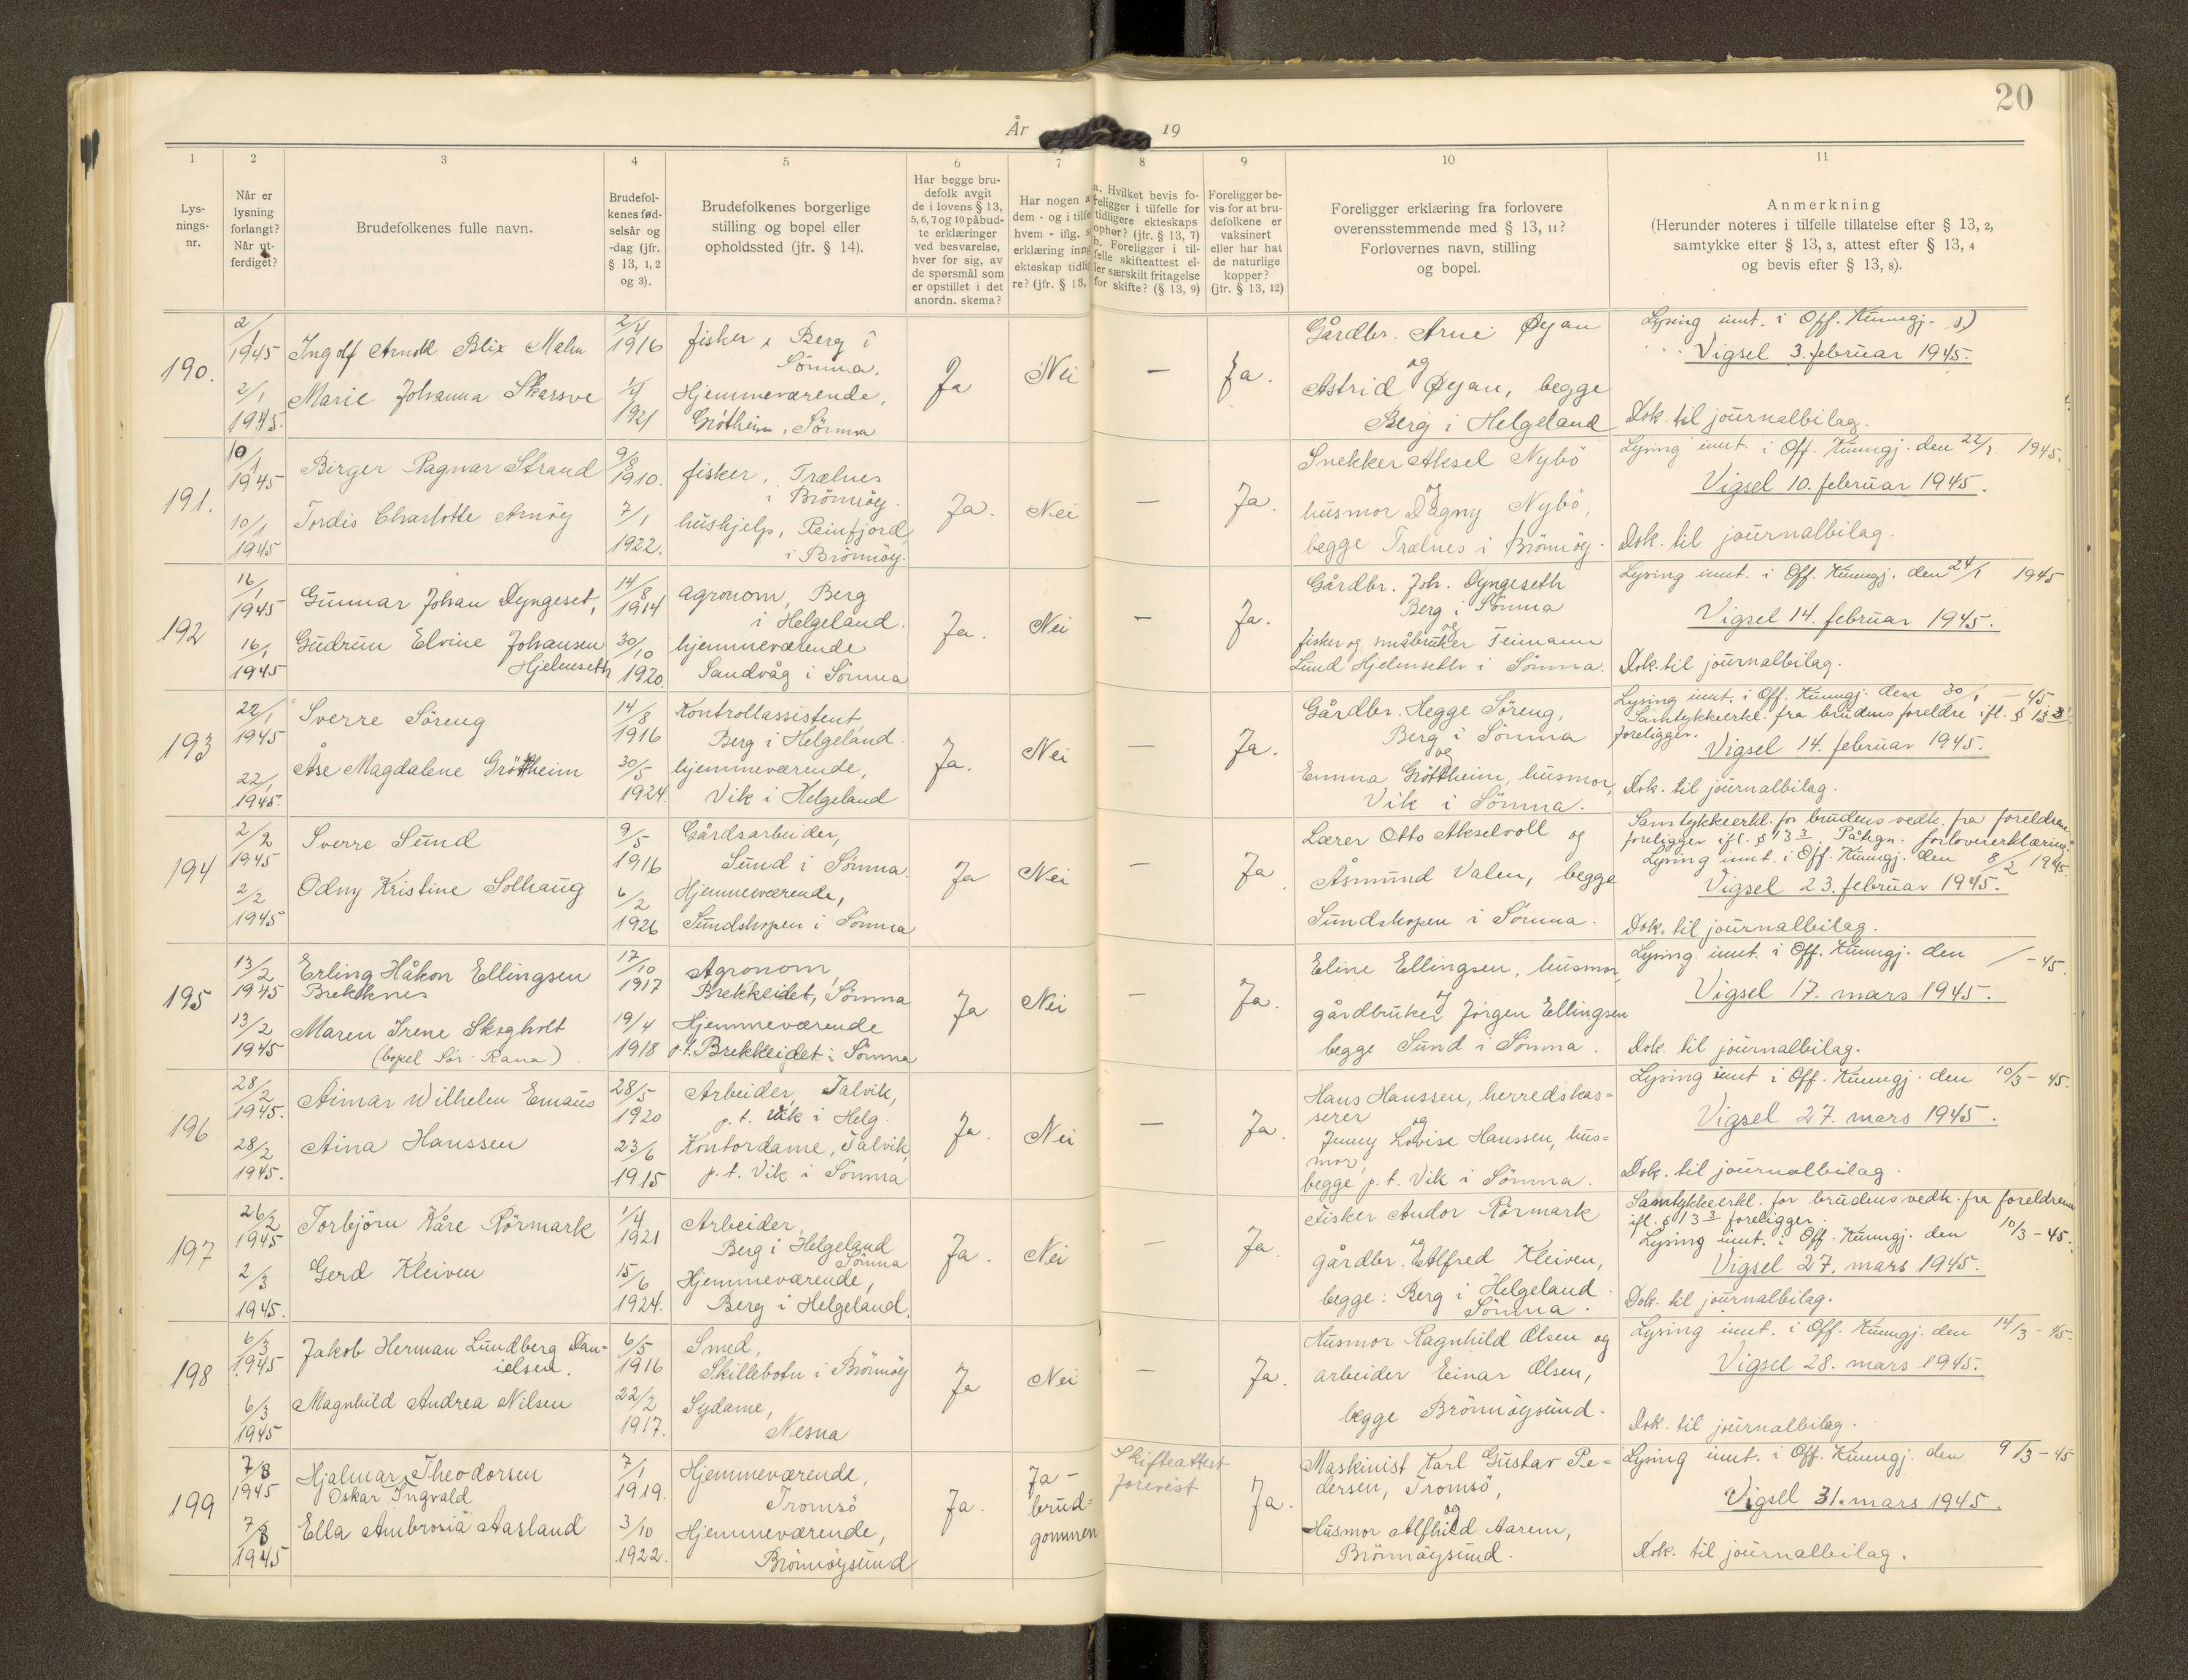 20
År 19
1 2 3 4 5 6 7 8 9 10 11
Lys-
nings-
nr.
Når er
lysning
forlangt?
Når ut-
ferdiget?
Brudefolkenes fulle navn.
Brudefol-
kenes fød-
selsår og
-dag (jfr.
§ 13, 1, 2
og 3).
Brudefolkenes borgerlige
stilling og bopel eller
opholdssted (jfr. § 14).
Har begge bru-
defolk avgit
de i lovens § 13,
5, 6, 7 og 10 påbud-
te erklæringer
ved besvarelse,
hver for sig, av
de spørsmål som
er opstillet i det
anordn. skema?
Har nogen a
dem - og i tilfe
hvem - iflg. s
erklæring inng
ekteskap tidli
re? (jfr. § 13,
a. Hvilket bevis fo-
religger i tilfelle for
tidligere ekteskaps
ophør? (jfr. § 13, 7)
b. Foreligger i til-
felle skifteattest el-
ler særskilt fritagelse
for skifte? (§ 13, 9)
Foreligger be-
vis for at bru-
defolkene er
vaksinert
eller har hat
de naturlige
kopper?
(jfr. § 13, 12)
Foreligger erklæring fra forlovere
overensstemmende med § 13, 11?
Forlovernes navn, stilling
og bopel.
Anmerkning
(Herunder noteres i tilfelle tillatelse efter § 13, 2,
samtykke efter § 13, 3, attest efter § 13, 4
og bevis efter § 13, 8).
190.
2/1
1945
2/1
1945.
Ingolf Arnold Blix Malm
Marie Johanna Skarsve
2/4
1916
1921
fisker, Berg i
Sömna.
Hjemmeværende,
Gröttheim, Sömna
Ja
Nei
—
Ja.
Gårdbr. Arne Øyan
og
Astrid Øyan, begge
Berg i Helgeland
Lysing innt. i Off. Kunngj.
Vigsel 3. februar 1945.
Dok. til journalbilag.
191.
10/1
1945
10/1
1945
Birger Ragnar Strand
Tordis Charlotte Arnöy
9/8
1910.
7/1
1922.
fisker, Trælnes
i Brönnöy.
hushjelp, Reinfjord,
i Brönnöy.
Ja.
Nei
—
Ja.
Snekker Aksel Nybö
og
husmor Dagny Nybö,
begge Trælnes i Brönnöy.
Lysing innt. i Off. Kunngj. den 22/1 1945.
Vigsel 10. februar 1945.
Dok. til journalbilag.
192
16/1
1945
16/1
1945
Gunnar Johan Dyngeset,
Gudrun Elvine Johansen
Hjelmseth
14/8
1914
30/10
1920.
agronom, Berg
i Helgeland.
hjemmeværende
Sandvåg i Sömna
Ja.
Nei
—
Ja.
Gårdbr. Joh. Dyngeseth
Berg i Sömna
og
fisker og småbruker Teimann
Lund Hjelmseth i Sömna.
Lysing innt. i Off. Kunngj. den 24/1 1945
Vigsel 14. februar 1945.
Dok. til journalbilag.
193
22/1
1945
22/1
1945.
Sverre Söreng
Åse Magdalene Gröttheim
14/8
1916
30/5
1924.
Kontrollassistent
Berg i Helgeland.
hjemmeværende,
Vik i Helgeland
Ja.
Nei
—
Ja.
Gårdbr. Hegge Söreng,
Berg i Sömna
og
Emma Gröttheim, husmor,
Vik i Sömna.
Lysing innt. i Off. Kunngj. den 30/1 - 45
Samtykkeerkl. fra brudens foreldre ifl. § 13 3
foreligger.
Vigsel 14. februar 1945.
Dok. til journalbilag.
194
2/2
1945
2/2
1945
Sverre Sund
Odny Kristine Solhaug
9/5
1916
6/2
1926
Gårdsarbeider,
Sund i Sömna.
Hjemmeværende,
Sundshopen i Sömna
Ja
Nei
—
Ja.
Lærer Otto Akselvoll og
Åsmund Valen, begge
Sundshopen i Sömna.
Samtykkeerkl. for brudens vedk. fra foreldrene
foreligger ifl. § 13 3. Påtegn. forlovererklæring.
Lysing innt. i Off. Kunngj. den 8/2 1945.
Vigsel 23. februar 1945.
Dok. til journalbilag.
195
13/2
1945
13/2
1945
Erling Håkon Ellingsen
Brekknes
Maren Irene Skogholt
(bopel Sör-Rana).
17/10
1917
19/4
1918
Agronom,
Brekkeidet, Sömna
Hjemmeværende
p.t. Brekkeidet i Sömna
Ja
Nei
—
Ja.
Eline Ellingsen, husmor,
og
gårdbruker Jörgen Ellingsen
begge Sund i Sömna.
Lysing innt. i Off. Kunngj. den / - 45.
Vigsel 17. mars 1945.
Dok. til journalbilag.
196
28/2
1945.
28/2
1945.
Aimar Wilhelm Emaus
Aina Hanssen
28/5
1920
23/6
1915
Arbeider, Talvik,
p.t. Vik i Helg.
Kontordame, Talvik,
p.t. Vik i Sömna
Ja.
Nei
—
Ja.
Hans Hanssen, herredskas-
serer
og
Jenny Lovise Hanssen, hus=
mor,
begge p.t. Vik i Sömna.
Lysing innt i Off. Kunngj. den 10/3 - 45.
Vigsel 27. mars 1945.
Dok. til journalbilag.
197
26/2
1945
2/3
1945.
Torbjörn Kåre Rörmark
Gerd Kleiven
1/4
1921
15/6
1924.
Arbeider,
Berg i Helgeland
Sömna
Hjemmeværende,
Berg i Helgeland.
Ja.
Nei
—
Ja.
Fisker Andor Rörmark
og
gårdbr. Alfred Kleiven,
begge: Berg i Helgeland.
Sömna.
Samtykkeerkl. for brudens vedk. fra foreldrene
ifl. § 13 3 foreligger.
Lysing innt. i Off. Kunngj. den 10/3 - 45.
Vigsel 27. mars 1945.
Dok. til journalbilag.
198
6/3
1945
6/3
1945
Jakob Herman Lundberg Dan-
ielsen.
Magnhild Andrea Nilsen
6/5
1916
22/2
1917.
Smed,
Skillebotn i Brönnöy
Sydame,
Nesna
Ja
Nei
—
Ja.
Husmor Ragnhild Olsen og
arbeider Einar Olsen,
begge Brönnöysund.
Lysing innt. i Off. Kunngj. den 14/3 - 45.
Vigsel 28. mars 1945.
Dok. til journalbilag.
199
7/3
1945
7/3
1945
Hjalmar Theodorsen
Oskar Ingvald
Ella Ambrosia Aasland
7/1
1919.
3/10
1922.
Hjemmeværende,
Tromsö
Hjemmeværende,
Brönnöysund
Ja.
Ja -
brud=
gommen
Skifteattest
forevist
Ja.
Maskinist Karl Gustav Pe=
dersen, Tromsö,
og
Husmor Alfhild Aarem,
Brönnöysund.
Lysing innt. i Off. Kunngj. den 9/3 - 45
Vigsel 31. mars 1945.
Dok. til journalbilag.